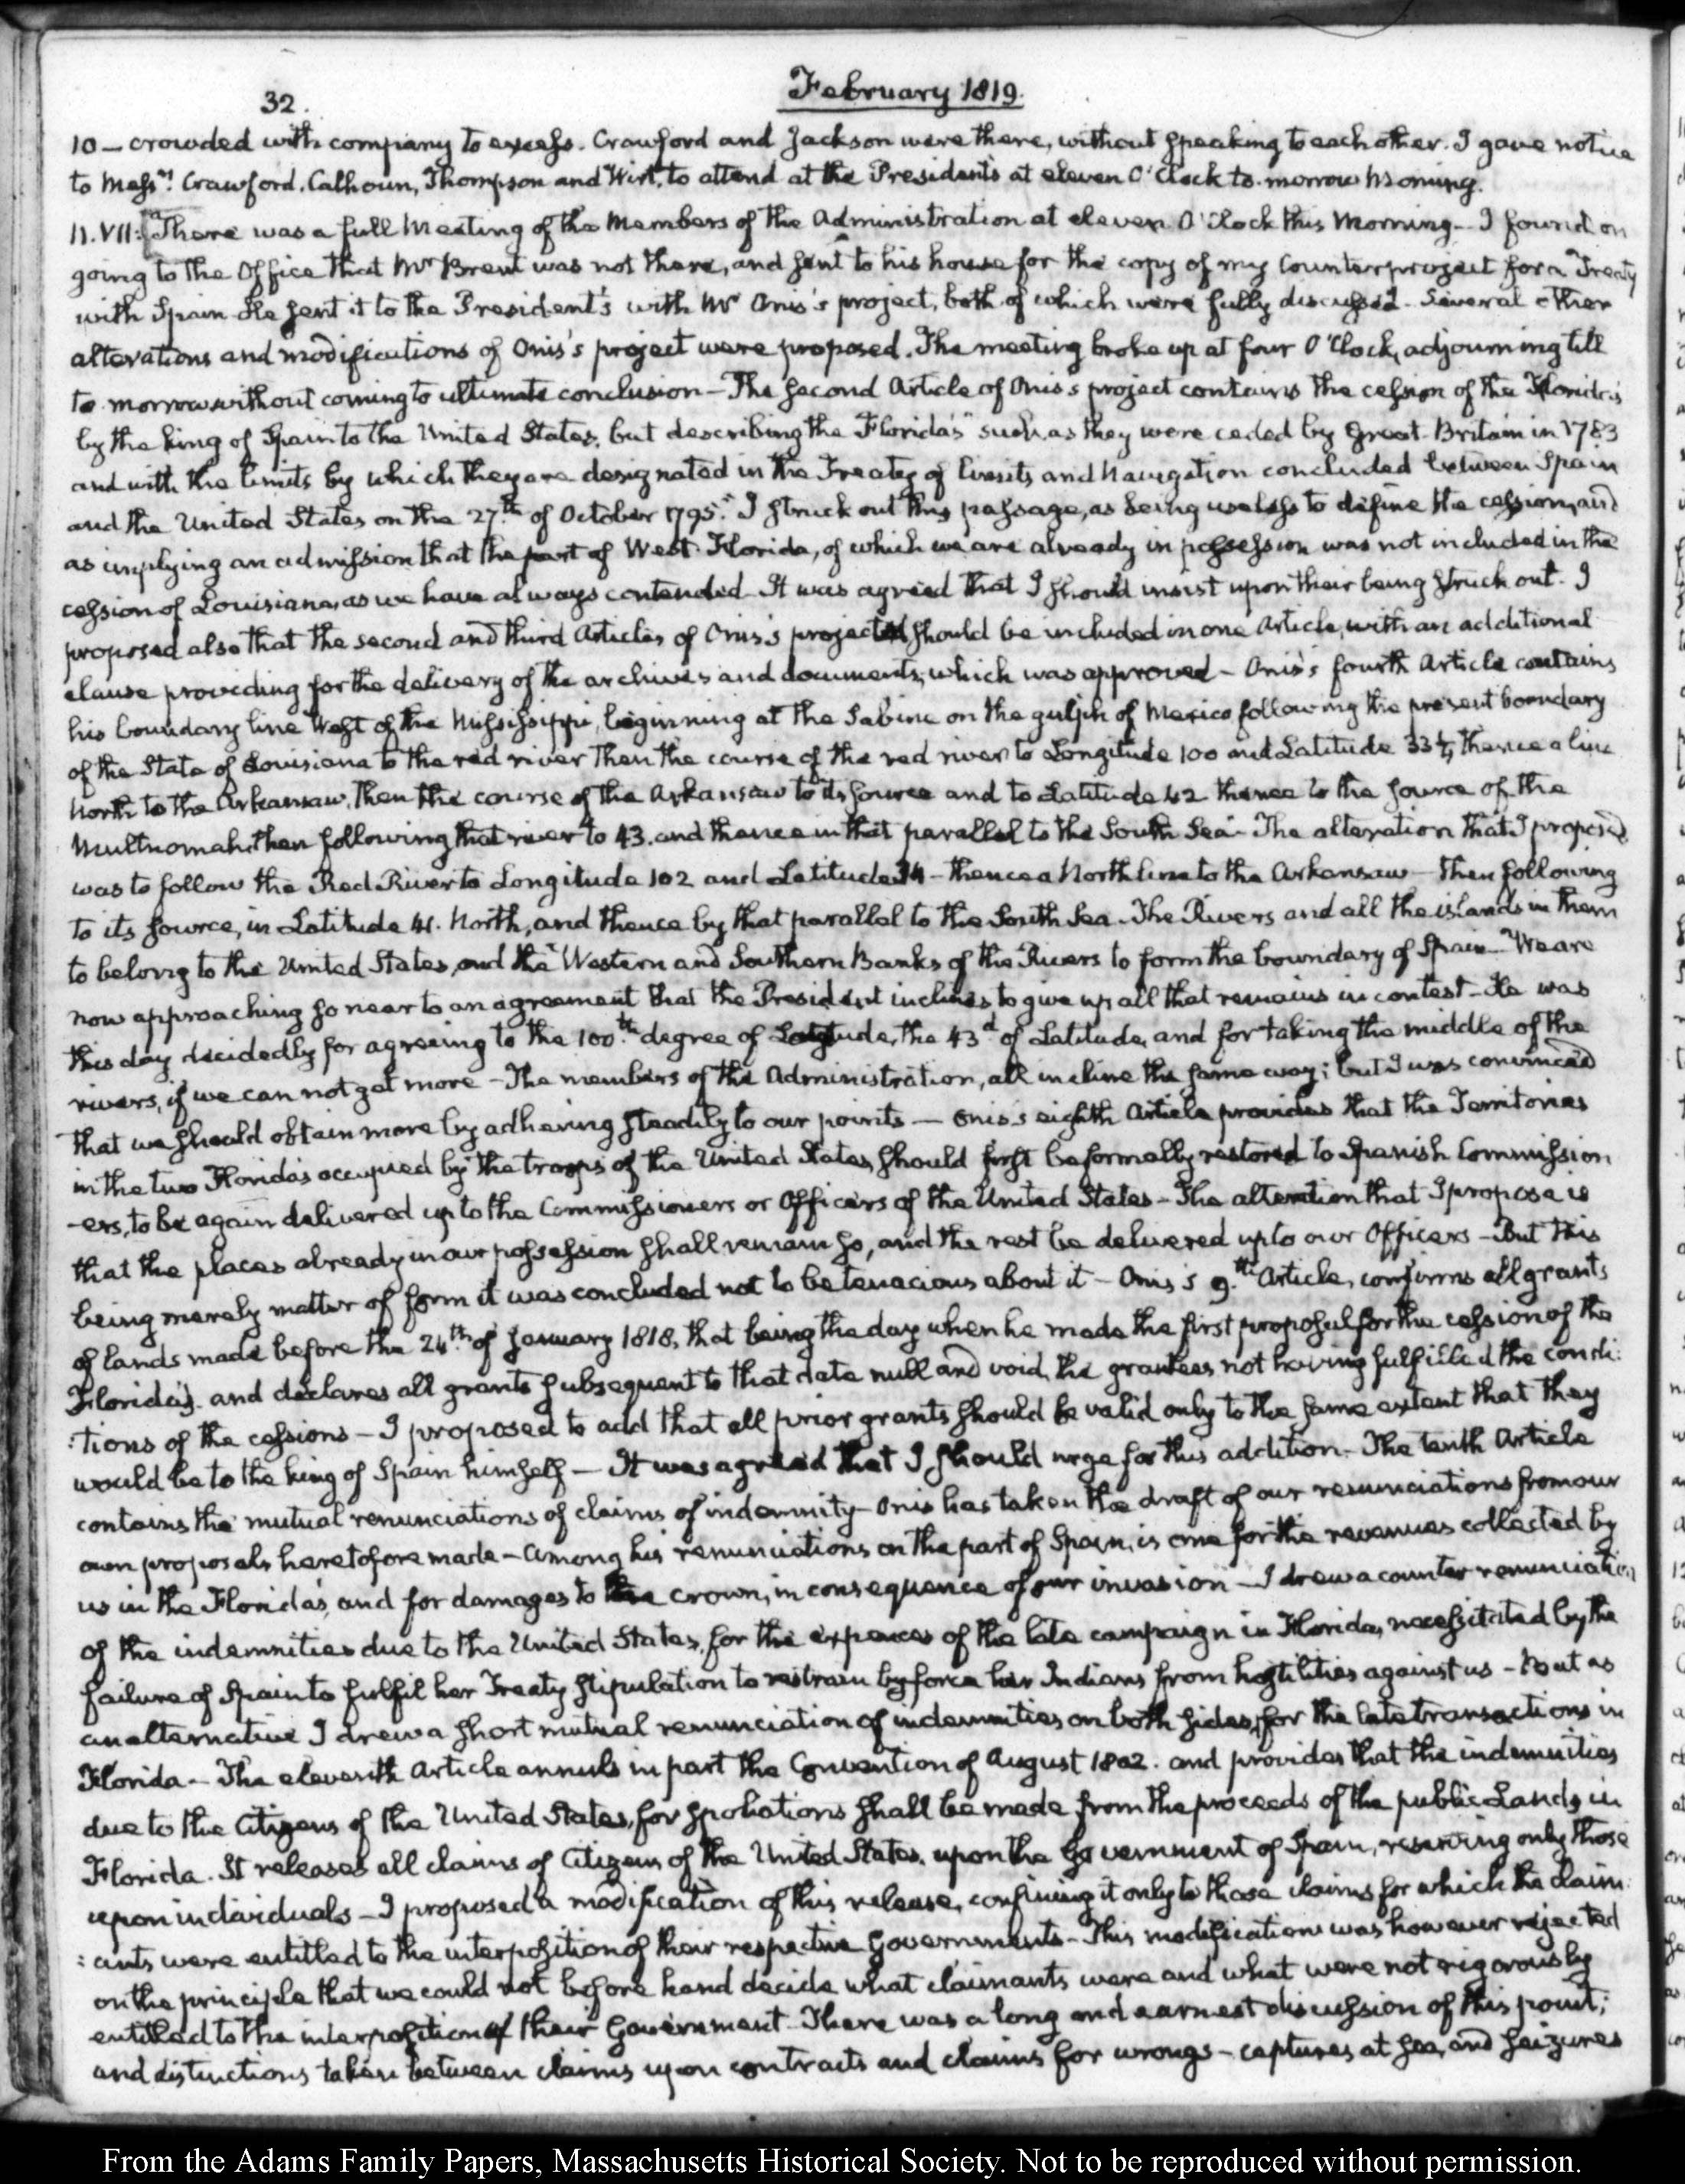 32.
February 1819.
10 – crowded with company to excess. Crawford and Jackson were there, without speaking to each other. I gave notice
to Messrs. Crawford, Calhoun, Thompson and Wirt, to attend at the President's at eleven O'Clock to-morrow Morning.
11. VII: There was a full Meeting of the Members of the Administration at eleven O'Clock this Morning – I found on
going to the Office that Mr Brent was not there, and sent to his house for the copy of my Counterproject for a Treaty
with Spain – He sent it to the President's with Mr Onis's project, both of which were fully discussed – Several other
alterations and modifications of Onis's project were proposed. The meeting broke up at four O'Clock, adjourning till
to-morrow without coming to ultimate conclusion – The second Article of Onis's project contains the cession of the Florida's
by the king of Spain to the United States, but describing the Florida's "such as they were ceded by Great-Britain in 1783
and with the limits by which they are designated in the Treaty of limits and Navigation concluded between Spain
and the United States on the 27th of October 1795." I struck out this passage, as being useless to define the cession, and
as implying an admission that the part of West-Florida, of which we are already in possession was not included in the
cession of Louisiana, as we have always contended – It was agreed that I should insist upon their being struck out. I
proposed also that the second and third Articles of Onis's project should be included in one Article, with an additional
clause providing for the delivery of the archives and documents, which was approved – Onis's fourth Article contains
his boundary line West of the Mississippi, beginning at the Sabine on the gulph of Mexico following the present boundary
of the State of Louisiana to the red river then the course of the red river to Longitude 100 and Latitude 33½, thence a line
North to the Arkansaw, then the course of the Arkansaw to its source and to Latitude 42 thence to the source of the
Multnomah, then following that river to 43. and thence in that parallel to the South Sea – The alteration that I proposed
was to follow the Red River to Longitude 102 and Latitude 34 – thence a North line to the Arkansaw – then following
to its source, in Latitude 41. North, and thence by that parallel to the South Sea – The Rivers and all the islands in them
to belong to the United States, and the Western and Southern Banks of the Rivers to form the boundary of Spain – We are
now approaching so near to an agreement that the President inclines to give up all that remains in contest – He was
this day decidedly for agreeing to the 100th degree of Longitude, the 43d of Latitude, and for taking the middle of the
rivers, if we can not get more – The members of the Administration, all incline the same way; but I was convinced
that we should obtain more by adhering steadily to our points — Onis's eighth Article provides that the Territories
in the two Florida's occupied by the troops of the United States, should first be formally restored to Spanish Commission
-ers, to be again delivered up to the Commissioners or Officers of the United States – The alteration that I propose is
that the places already in our possession shall remain so, and the rest be delivered up to our Officers – But this
being merely matter of form it was concluded not to be tenacious about it – Onis's 9th Article, confirms all grants
of lands made before the 24th of January 1818, that being the day when he made the first proposal for the cession of the
Florida's. and declares all grants subsequent to that date null and void, the grantees not having fulfilled the condi:
:tions of the cessions – I proposed to add that all prior grants should be valid only to the same extent that they
would be to the king of Spain himself – It was agreed that I should urge for this addition – The tenth Article
contains the mutual renunciations of claims of indemnity – Onis has taken the draft of our renunciations from our
own proposals heretofore made – Among his renunciations on the part of Spain, is one for the revenues collected by
us in the Florida's, and for damages to the crown, in consequence of our invasion – I drew a counter renunciation
of the indemnities due to the United States, for the expences of the late campaign in Florida, necessitated by the
failure of Spain to fulfil her Treaty stipulation to restrain by force her Indians from hostilities against us – But as
an alternative I drew a short mutual renunciation of indemnities on both sides, for the late transactions in
Florida – The eleventh Article annuls in part the Convention of August 1802. and provides that the indemnities
due to the Citizens of the United States, for spoliations shall be made from the proceeds of the public Lands in
Florida. It releases all claims of Citizens of the United States, upon the Government of Spain, reserving only those
upon individuals – I proposed a modification of this release, confining it only to those claims for which the claim:
:ants were entitled to the interposition of their respective Governments – This modification was however rejected
on the principle that we could not before hand decide what claimants were and what were not rigorously
entitled to the interposition of their Government – There was a long and earnest discussion of this point;
and distinctions taken between claims upon contracts and claims for wrongs – captures at sea, and seizures
From the Adams Family Papers, Massachusetts Historical Society. Not to be reproduced without permission.